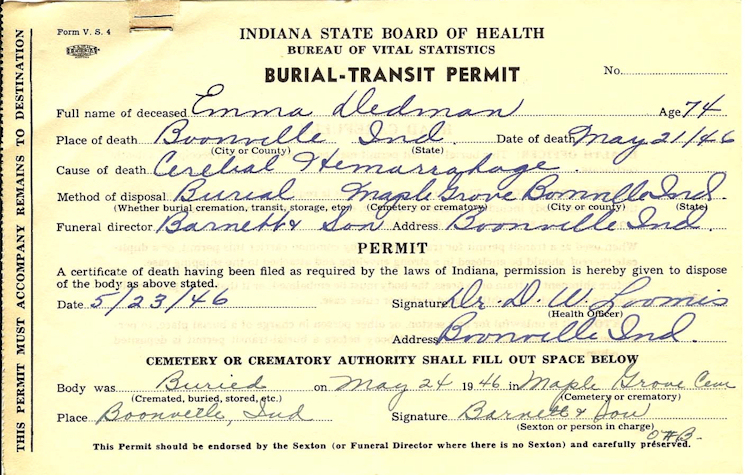 Form V. S. 4
INDIANA STATE BOARD OF HEALTH
BUREAU OF VITAL STATISTICS
BURIAL-TRANSIT PERMIT
No.
Full name of deceased Emma Dedman Age 74
Place of death Boonville Ind. Date of death May 21/46
(City or County) (State)
Cause of death Cerebial Hemarrahage.
Method of disposal Burial Maple Grove Boonville Ind.
(Whether burial cremation, transit, storage, etc) (Cemetery or crematory) (City or county) (State)
Funeral director Barnett & Son Address Boonville Ind.
PERMIT
A certificate of death having been filed as required by the laws of Indiana, permission is hereby given to dispose
of the body as above stated.
Date 5/23/46 Signature Dr. D. W. Loomis
(Health Officer)
Address Boonville Ind.
CEMETERY OR CREMATORY AUTHORITY SHALL FILL OUT SPACE BELOW
Body was Buried on May 24 1946 in Maple Grove Cem
(Cremated, buried, stored, etc.) (Cemetery or crematory)
Place Boonville, Ind Signature Barnett & Son
(Sexton or person in charge)
This Permit should be endorsed by the Sexton (or Funeral Director where there is no Sexton) and carefully preserved.
THIS PERMIT MUST ACCOMPANY REMAINS TO DESTINATION